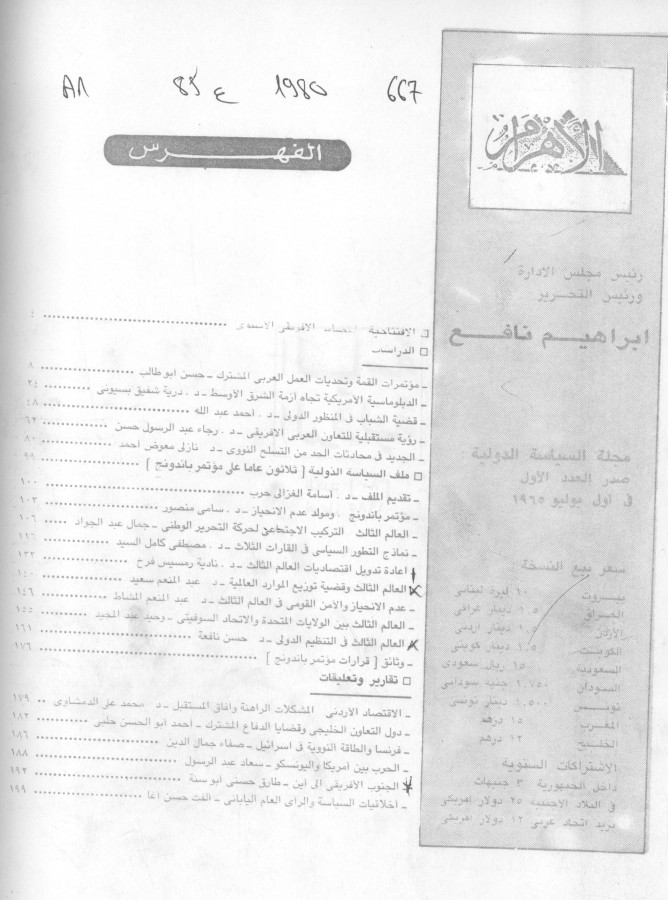 A1 85 ع 1980 667
الأهرام
الفهرس
رئيس مجلس الادارة
ورئيس التحرير
ابراهيم نافع
مجلة السياسة الدولية :
صدر العدد الأول
فى أول يوليو ١٩٦٥
سعر بيع النسخة :
بيروت ١٠ ليرة لبنانى
العراق دينار عراقى
الأردن دينار اردنى
الكويت دينار كويتى
السعودية ١٥ ريال سعودى
السودان ١,٧٥٠ جنيه سودانى
تونس ١,٥٠٠ دينار تونسى
المغرب ١٥ درهم
الخليج ١٢ درهم
الاشتراكات السنوية
داخل الجمهورية ٣ جنيهات
فى البلاد الاجنبية ٢٥ دولار امريكى
بريد اتحاد عربى ١٢ دولار امريكى
□ الافتتاحية الافريقى ٤
□ الدراسات
ـ مؤتمرات القمة وتحديات العمل العربى المشترك ـ حسن ابو طالب ٨
ـ الدبلوماسية الأمريكية تجاه أزمة الشرق الأوسط ـ د . درية شفيق بسيونى ٢٤
ـ قضية الشباب فى المنظور الدولى ـ د . أحمد عبد الله ٤٨
ـ رؤية مستقبلية للتعاون العربى الافريقى ـ د . رجاء عبد الرسول حسن ٦٢
ـ الجديد فى محادثات الحد من التسلح النووى ـ د نازلى معوض أحمد ٨٠
□ ملف السياسة الدولية [ ثلاثون عاما على مؤتمر باندونج ] ٩٩
ـ تقديم الملف ـ د . أسامة الغزالى حرب ١٠٠
ـ مؤتمر باندونج . ومولد عدم الانحياز ـ د . سامى منصور ١٠٣
ـ العالم الثالث التركيب الاجتماعى لحركة التحرير الوطنى ـ جمال عبد الجواد ١٠٦
ـ نماذج التطور السياسى فى القارات الثلاث ـ د . مصطفى كامل السيد ١٢٦
ـ اعادة تدويل اقتصاديات العالم الثالث ـ د . نادية رمسيس فرح ١٣٢
ـ العالم الثالث وقضية توزيع الموارد العالمية ـ د عبد المنعم سعيد ١٤٠
ـ عدم الانحياز والأمن القومى فى العالم الثالث ـ د عبد المنعم المشاط ١٤٦
ـ العالم الثالث بين الولايات المتحدة والاتحاد السوفيتى ـ وحيد عبد المجيد ١٥٥
ـ العالم الثالث فى التنظيم الدولى ـ د حسن نافعة ١٦١
ـ وثائق [ قرارات مؤتمر باندونج ] ١٧٦
□ تقارير وتعليقات
ـ الاقتصاد الأردنى المشكلات الراهنة وآفاق المستقبل ـ د محمد على الدمشاوى ١٧٩
ـ دول التعاون الخليجى وقضايا الدفاع المشترك ـ أحمد ابو الحسن حلبى ١٨٢
ـ فرنسا والطاقة النووية فى اسرائيل ـ صفاء جمال الدين ١٨٦
ـ الحرب بين امريكا واليونسكو ـ سعاد عبد الرسول ١٨٨
ـ الجنوب الأفريقى الى أين ـ طارق حسنى أبو سنة ١٩٢
ـ أخلاقيات السياسة والرأى العام اليابانى ـ الفت حسن أغا ١٩٩